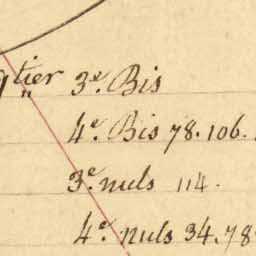 qtier 3e. Bis
4e. Bis 78. 106.
3e. nuls 114.
4e. nuls 34. 78